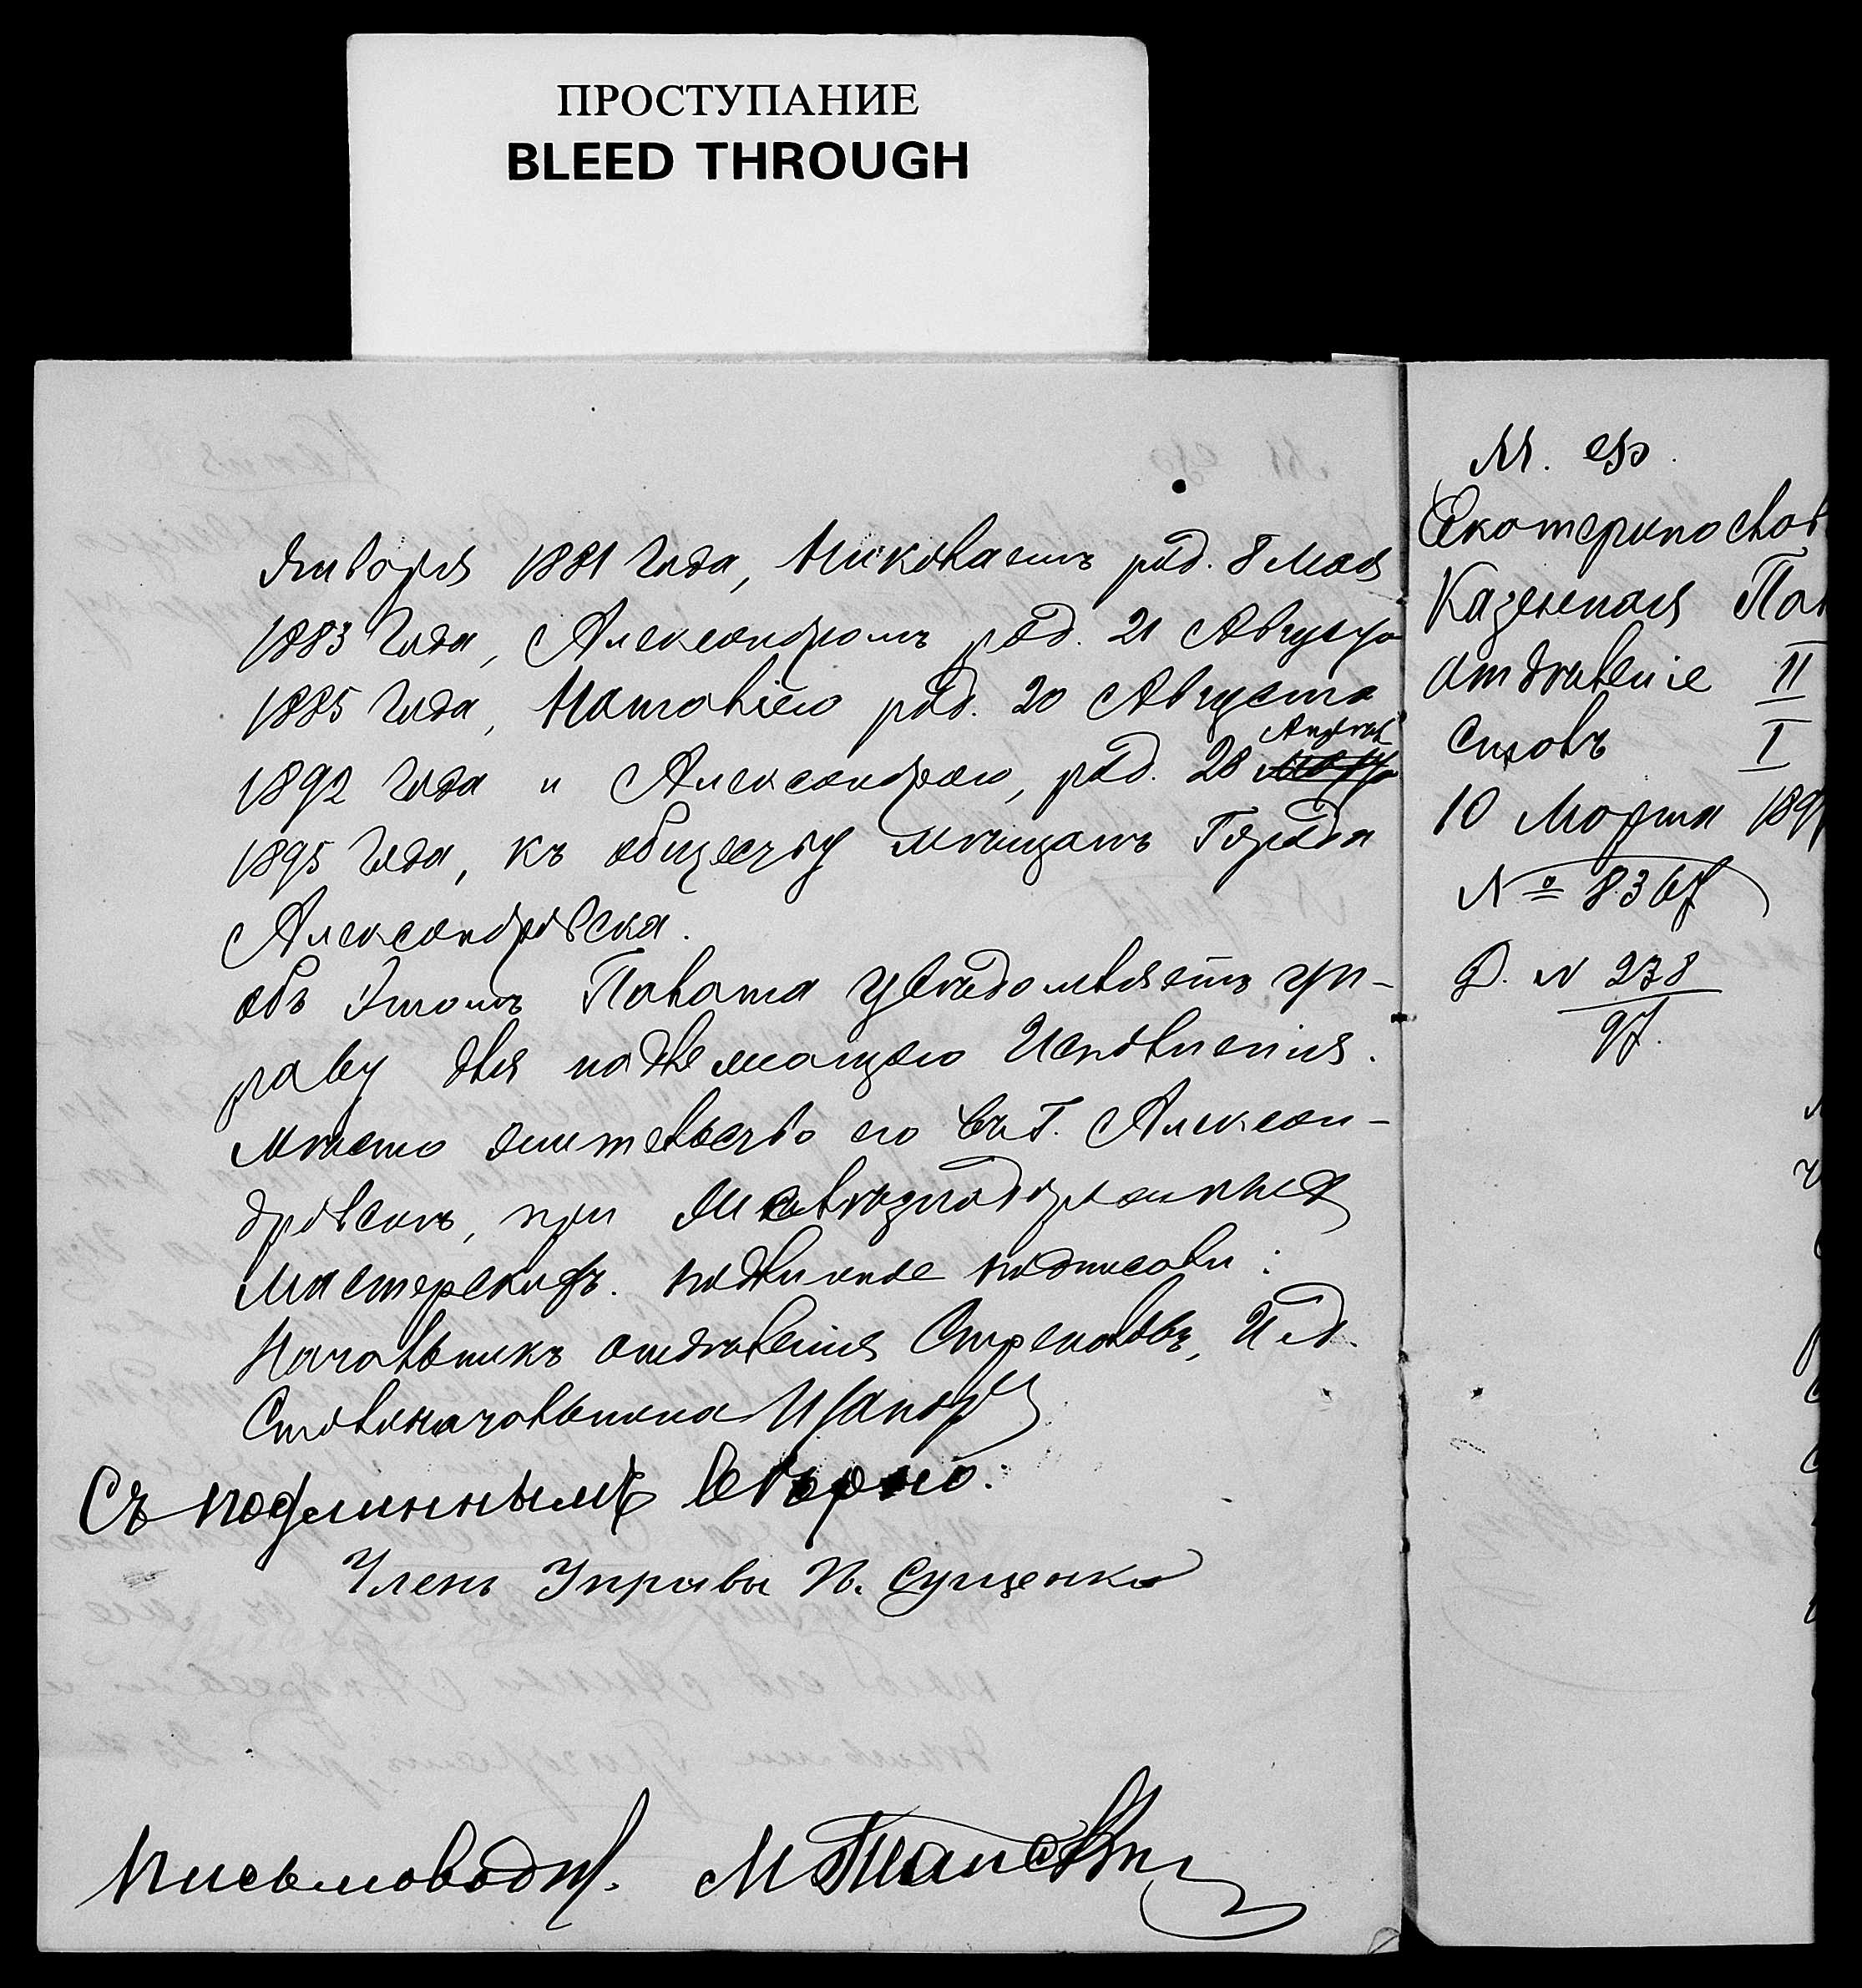 ПРОСТУПАНИЕ
BLEED THROUGH
Января 1881 года, Николаемъ род. 8 Мая
1883 года, Александромъ род. 21 Августа
1885 года, род. 20 Августа
Апреля
1892 года и Александрою, род. 28
1895 года, къ обществу мѣщанъ Города
Александровска.
объ этомъ Палата увѣдомляетъ уп-
раву для надлежащаго Исполненія.
Мѣсто жительство его въ Г. Алексан-
дровскѣ, при
Мастерскихъ. подлинное подписали:
Начальникъ отдѣленія Стрепоковъ, И. д.
Столоначальника
Съ подлиннымъ вѣрно.
Членъ Управы П. Сущенко
Письмовод.
М.
Екатеринослав
Казенная Пал
отдѣленіе II
Столъ I
10 Марта 189
№ 8367
Д. N 238
97.